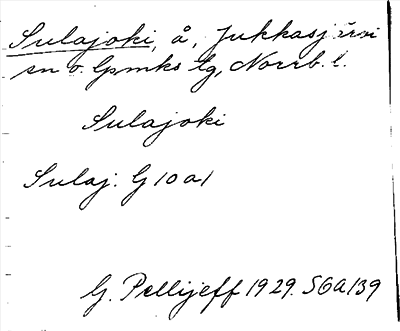 Sulajoki, å, Jukkasjärvi
sn o. lpmks lg, Norrb. l.
Sulajoki
Sulaj: G 10 a 1
G. Pellijeff 1929. SGA 139